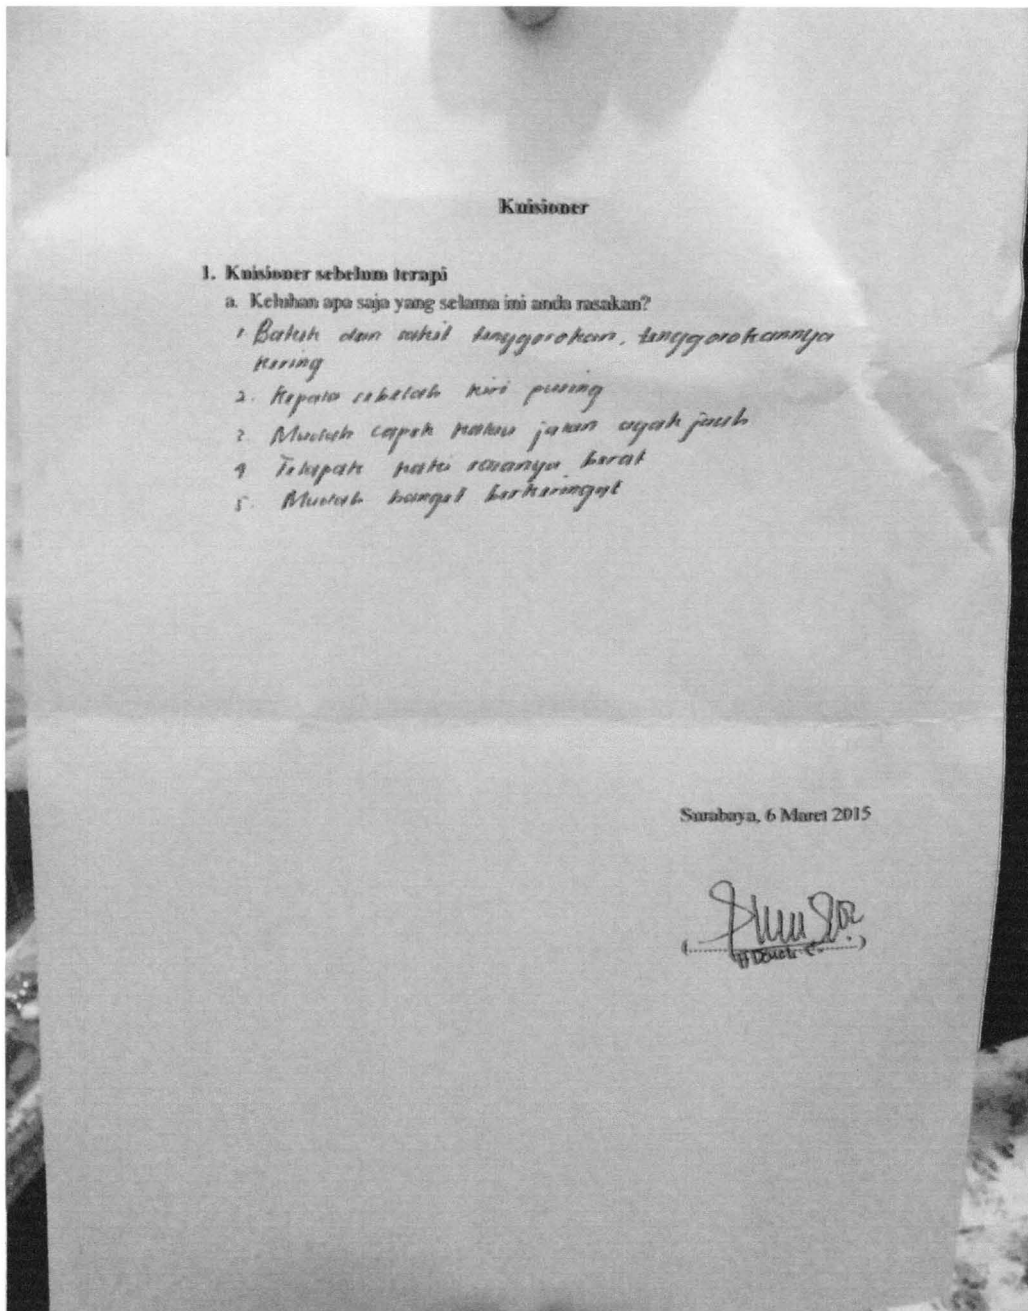 Kuisioner
1. Kuisioner sebelum terapi
a. Keluhan apa saja yang selama ini anda rasakan?
1. Batuk dan sakit tenggorokan, tenggorokannya
kering
2. Kepala sebelah kiri pusing
3. Mudah capek kalau jalan agak jauh
4 Telapak kaki rasanya berat
5. Mudah banget berkeringat
Surabaya, 6 Maret 2015